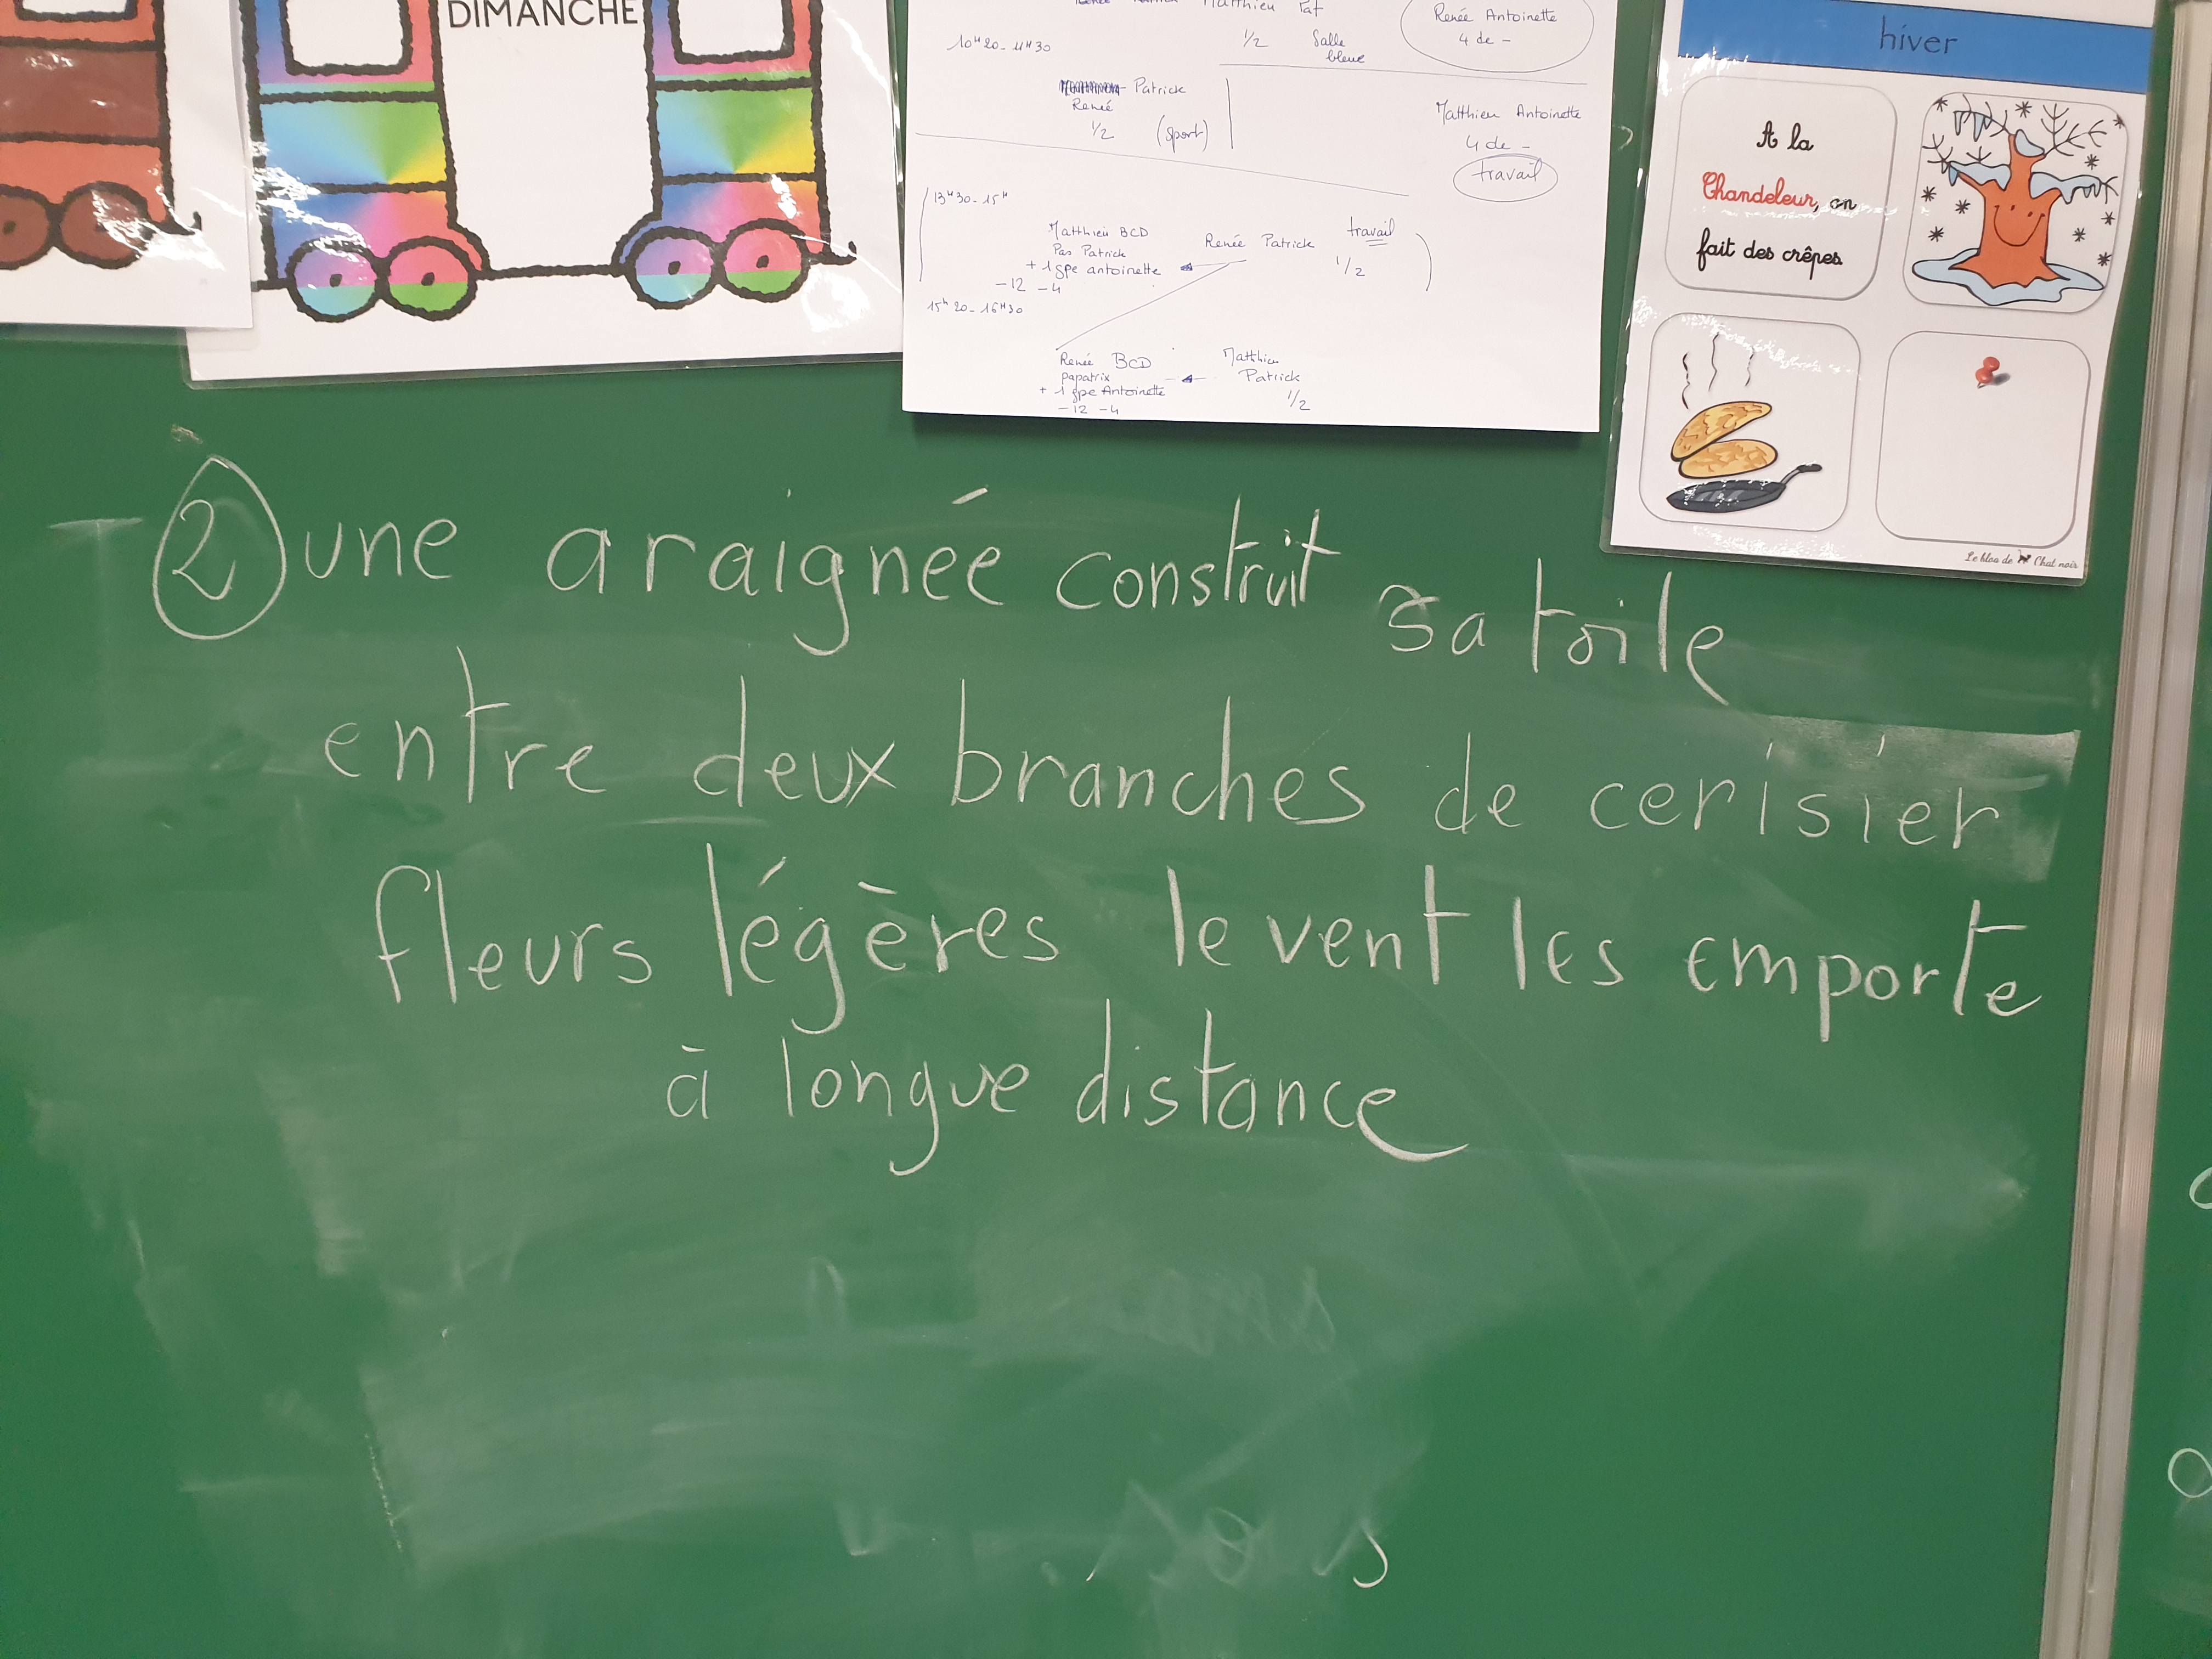 DIMANCHE
Matthieu Pat
Renée Antoinette
4 de -
10H20-11H30
1/2 Salle
bleue
Patrick
Renée
1/2 (sport)
Matthieu Antoinette
4 de -
travail
13H30-15H
Matthieu BCD
Pas Patrick
+ 1 gpe antoinette
-12 -4
Renée Patrick travail
1/2
15h20-16H30
Renée BCD
papatrix
+ 1 gpe Antoinette
-12 -4
Matthieu
Patrick
1/2
hiver
A la
Chandeleur, on
fait des crêpes.
Le blog de Chat noir
2 une araignée construit sa toile
entre deux branches de cerisier
fleurs légères le vent les emporte
à longue distance